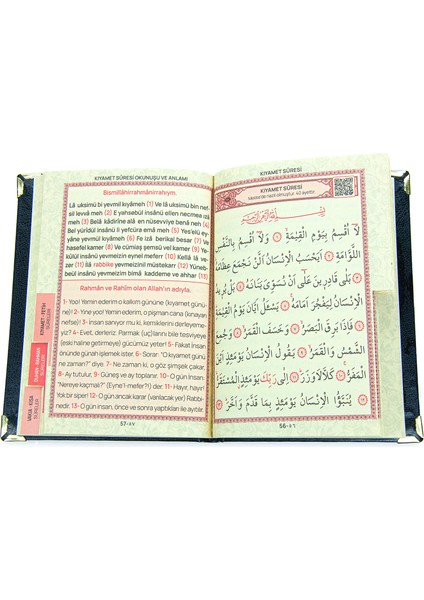 KIYAMET SÛRESİ OKUNUŞU VE ANLAMI
Bismillâhirrahmânirrahıym.
Lâ uksimü bi yevmil kıyâmeh (1) Ve lâ uksimü bin nef-
sil levvâ meh (2) E yahsebül insânü ellen necmea ızâ
meh (3) Belâ kâdirîne alâ en nüsevviye benâ neh (4)
Bel yürîdül insânü li yefcüra emâ meh (5) Yes'elü ey-
yâne yevmül kıyâmeh (6) Fe izâ berikal besar (7) Ve
hasefel kamer (8) Ve cümiaş şemsü vel kamer (9) Ye-
kûlül insânü yevmeizin eynel mefer (10) Kellâ lâ ve-
zer (11) İlâ rabbike yevmeizinil müstekarr (12) Yüneb-
beül insânü yevmeizim bimâ kaddeme ve ahhar (13)
Rahmân ve Rahîm olan Allah'ın adıyla.
1- Yoo! Yemin ederim o kalkım gününe (kıyamet günü-
ne)! 2- Yine yoo! Yemin ederim o pişman cana (kınayan
nefse)! 3- İnsan sanıyor mu ki, kemiklerini derleyme-
yiz? 4- Evet, derleriz. Parmak (uç)larını bile tesviyeye
(eski haline getirmeye) gücümüz yeter. 5- Fakat insan
önünde günah işlemek ister. 6- Sorar: "O kıyamet günü
ne zaman?" diye. 7- Ne zaman ki, o göz şimşek çakar,
8- Ay tutulur, 9- Güneş ve ay toplanır. 10- O gün insan
"Nereye kaçmalı?" (Eyne'l-mefer?!) der. 11- Hayır, hayır!
Yok bir siper! 12- O gün ancak karar (varılacak yer) Rabbi-
nedir. 13- O gün insan, önce ve sonra yaptıkları ile ayırtılır.
57-٤٧
KIYAMET - FETİH
SÛRELERİ
VAKIA - KISA
SÛRELER
KIYAMET SÛRESİ
KIYAMET SÛRESİ
Mekke'de nazil olmuştur. 40 ayettir.
لَٓا اُقْسِمُ بِيَوْمِ الْقِيٰمَةِ ﴿١﴾ وَلَٓا اُقْسِمُ بِالنَّفْسِ
اللَّوَّامَةِ ﴿٢﴾ اَيَحْسَبُ الْاِنْسَانُ اَلَّنْ نَجْمَعَ عِظَامَهُ
﴿٣﴾ بَلٰى قَادِرٖينَ عَلٰٓى اَنْ نُسَوِّيَ بَنَانَهُ ﴿٤﴾ بَلْ يُرٖيدُ
الْاِنْسَانُ لِيَفْجُرَ اَمَامَهُ ﴿٥﴾ يَسْـَٔلُ اَيَّانَ يَوْمُ الْقِيٰمَةِ
﴿٦﴾ فَاِذَا بَرِقَ الْبَصَرُ ﴿٧﴾ وَخَسَفَ الْقَمَرُ ﴿٨﴾ وَجُمِعَ
الشَّمْسُ وَالْقَمَرُ ﴿٩﴾ يَقُولُ الْاِنْسَانُ يَوْمَئِذٍ اَيْنَ
الْمَفَرُّ ﴿١٠﴾ كَلَّا لَا وَزَرَ ﴿١١﴾ اِلٰى رَبِّكَ يَوْمَئِذٍ الْمُسْتَقَرُّ
﴿١٢﴾ يُنَبَّؤُا الْاِنْسَانُ يَوْمَئِذٍ بِمَا قَدَّمَ وَاَخَّرَ ﴿١٣﴾
56-٤٦